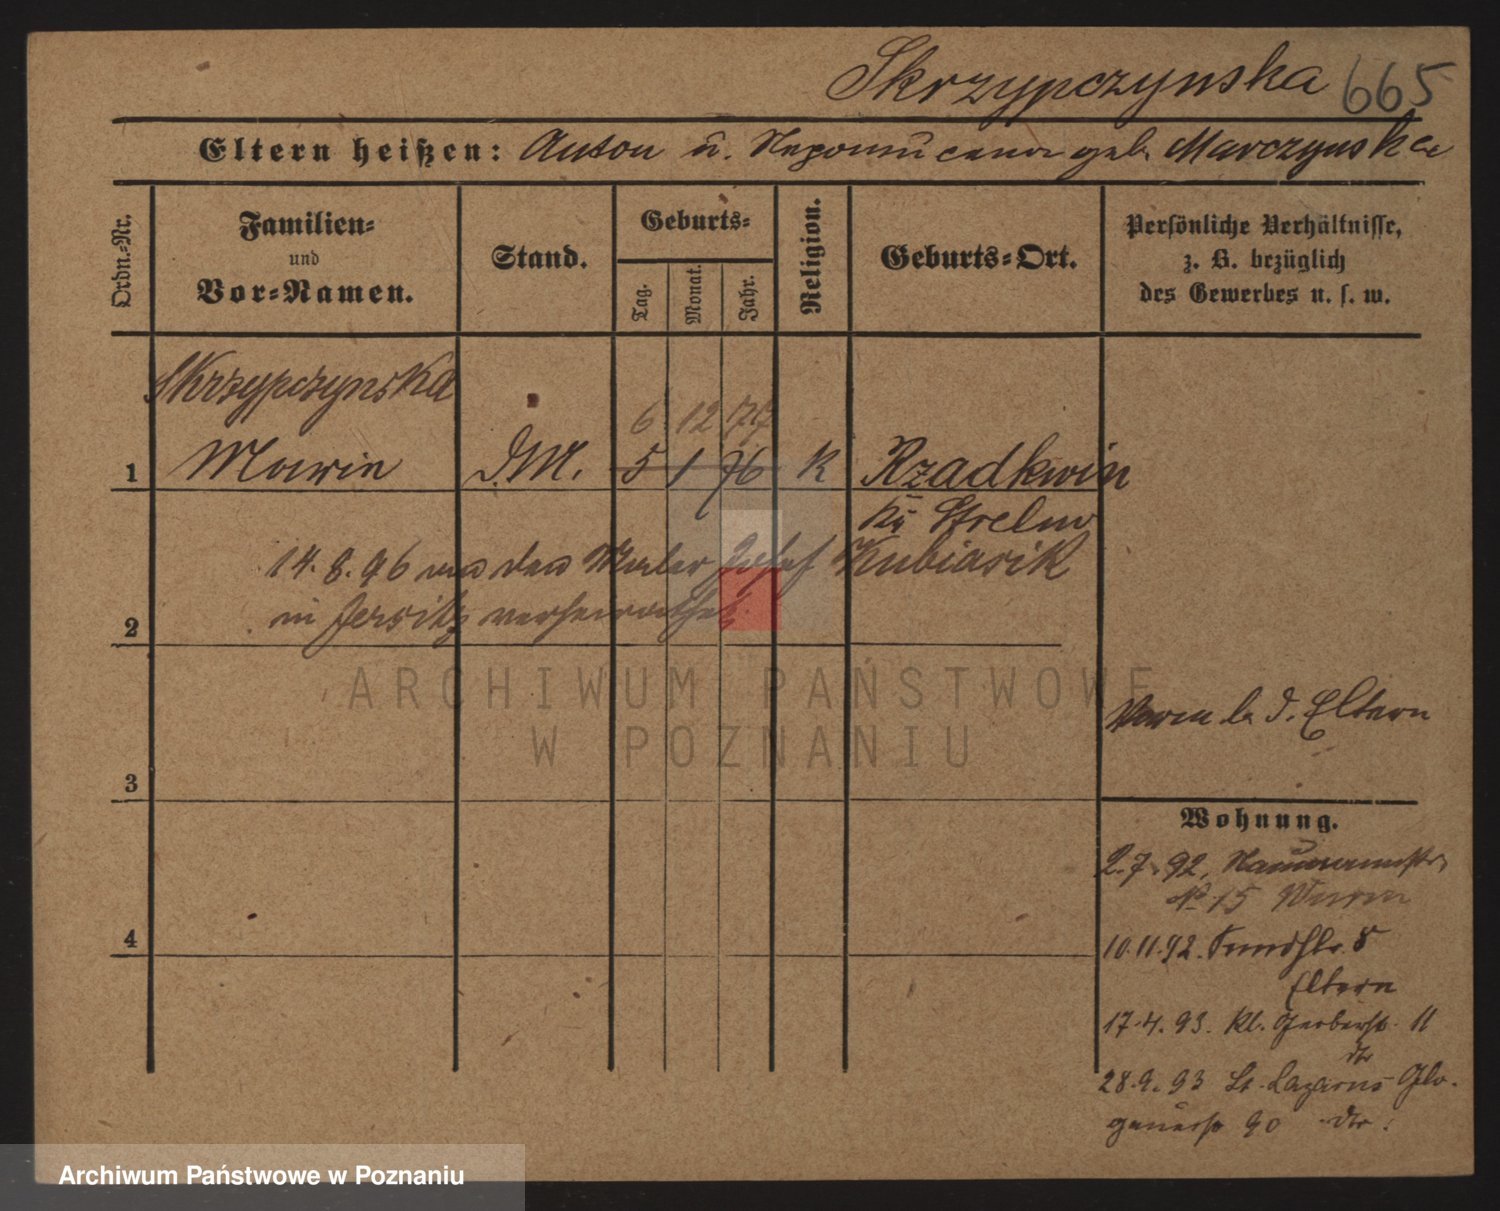 Skrzypczynska 665
Eltern heißen: Anton u. Nepomucena geb. Marczynska
Ordn.-Nr. Familien- und Vor-Namen. Stand. Geburts- Tag. Monat. Jahr. Religion. Geburts-Ort. Persönliche Verhältnisse, z. B. bezüglich des Gewerbes u. s. w.
Skrzypczynska
6 12 77
1 Marie D.M. 5 1 76 K Rzadkwin
Kr Strelno
14.8.96 an den Maler Josef Kubiasik
2 in Jersitz verheirathet.
ARCHIWUM PAŃSTWOWE
W POZNANIU
b. d. Eltern
3
Wohnung.
2.7.92, Naumannstr.
No 15
4
10.11.92. 8
Eltern
17.4.93. Kl. Gerberstr. 11
dto
28.9.93 St. Lazarus Glo-
gauerstr 90 dto.
Archiwum Państwowe w Poznaniu